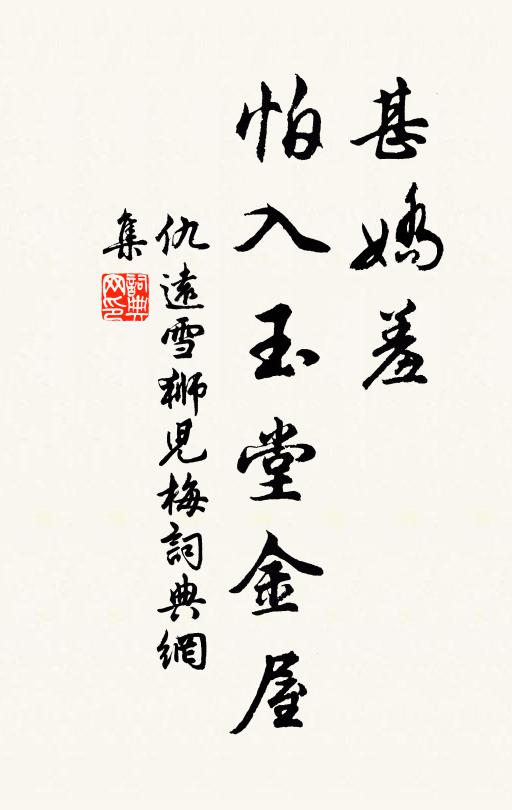 甚嬌羞
怕入玉堂金屋
仇遠雪獅兒梅詞典網
集
詞典
网印